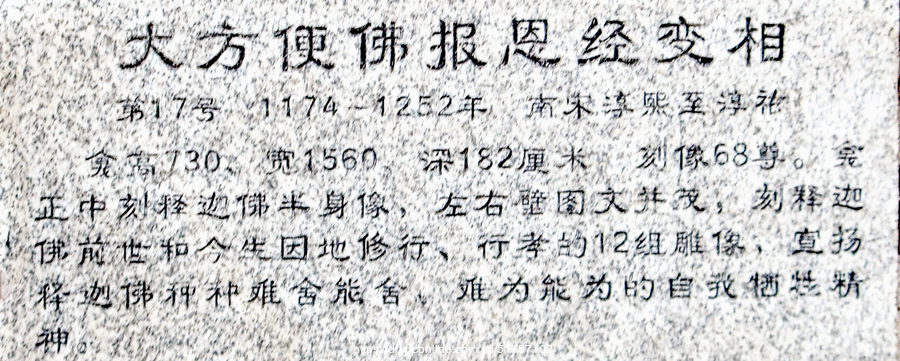 大方便佛报恩经变相
第17号 1174-1252年 南宋淳熙至淳祐
龛高730、宽1560、深182厘米 刻像68尊。龛
正中刻释迦佛半身像，左右壁图文并茂，刻释迦
佛前世和今生因地修行、行孝的12组雕像，宣扬
释迦佛种种难舍能舍、难为能为的自我牺牲精
神。